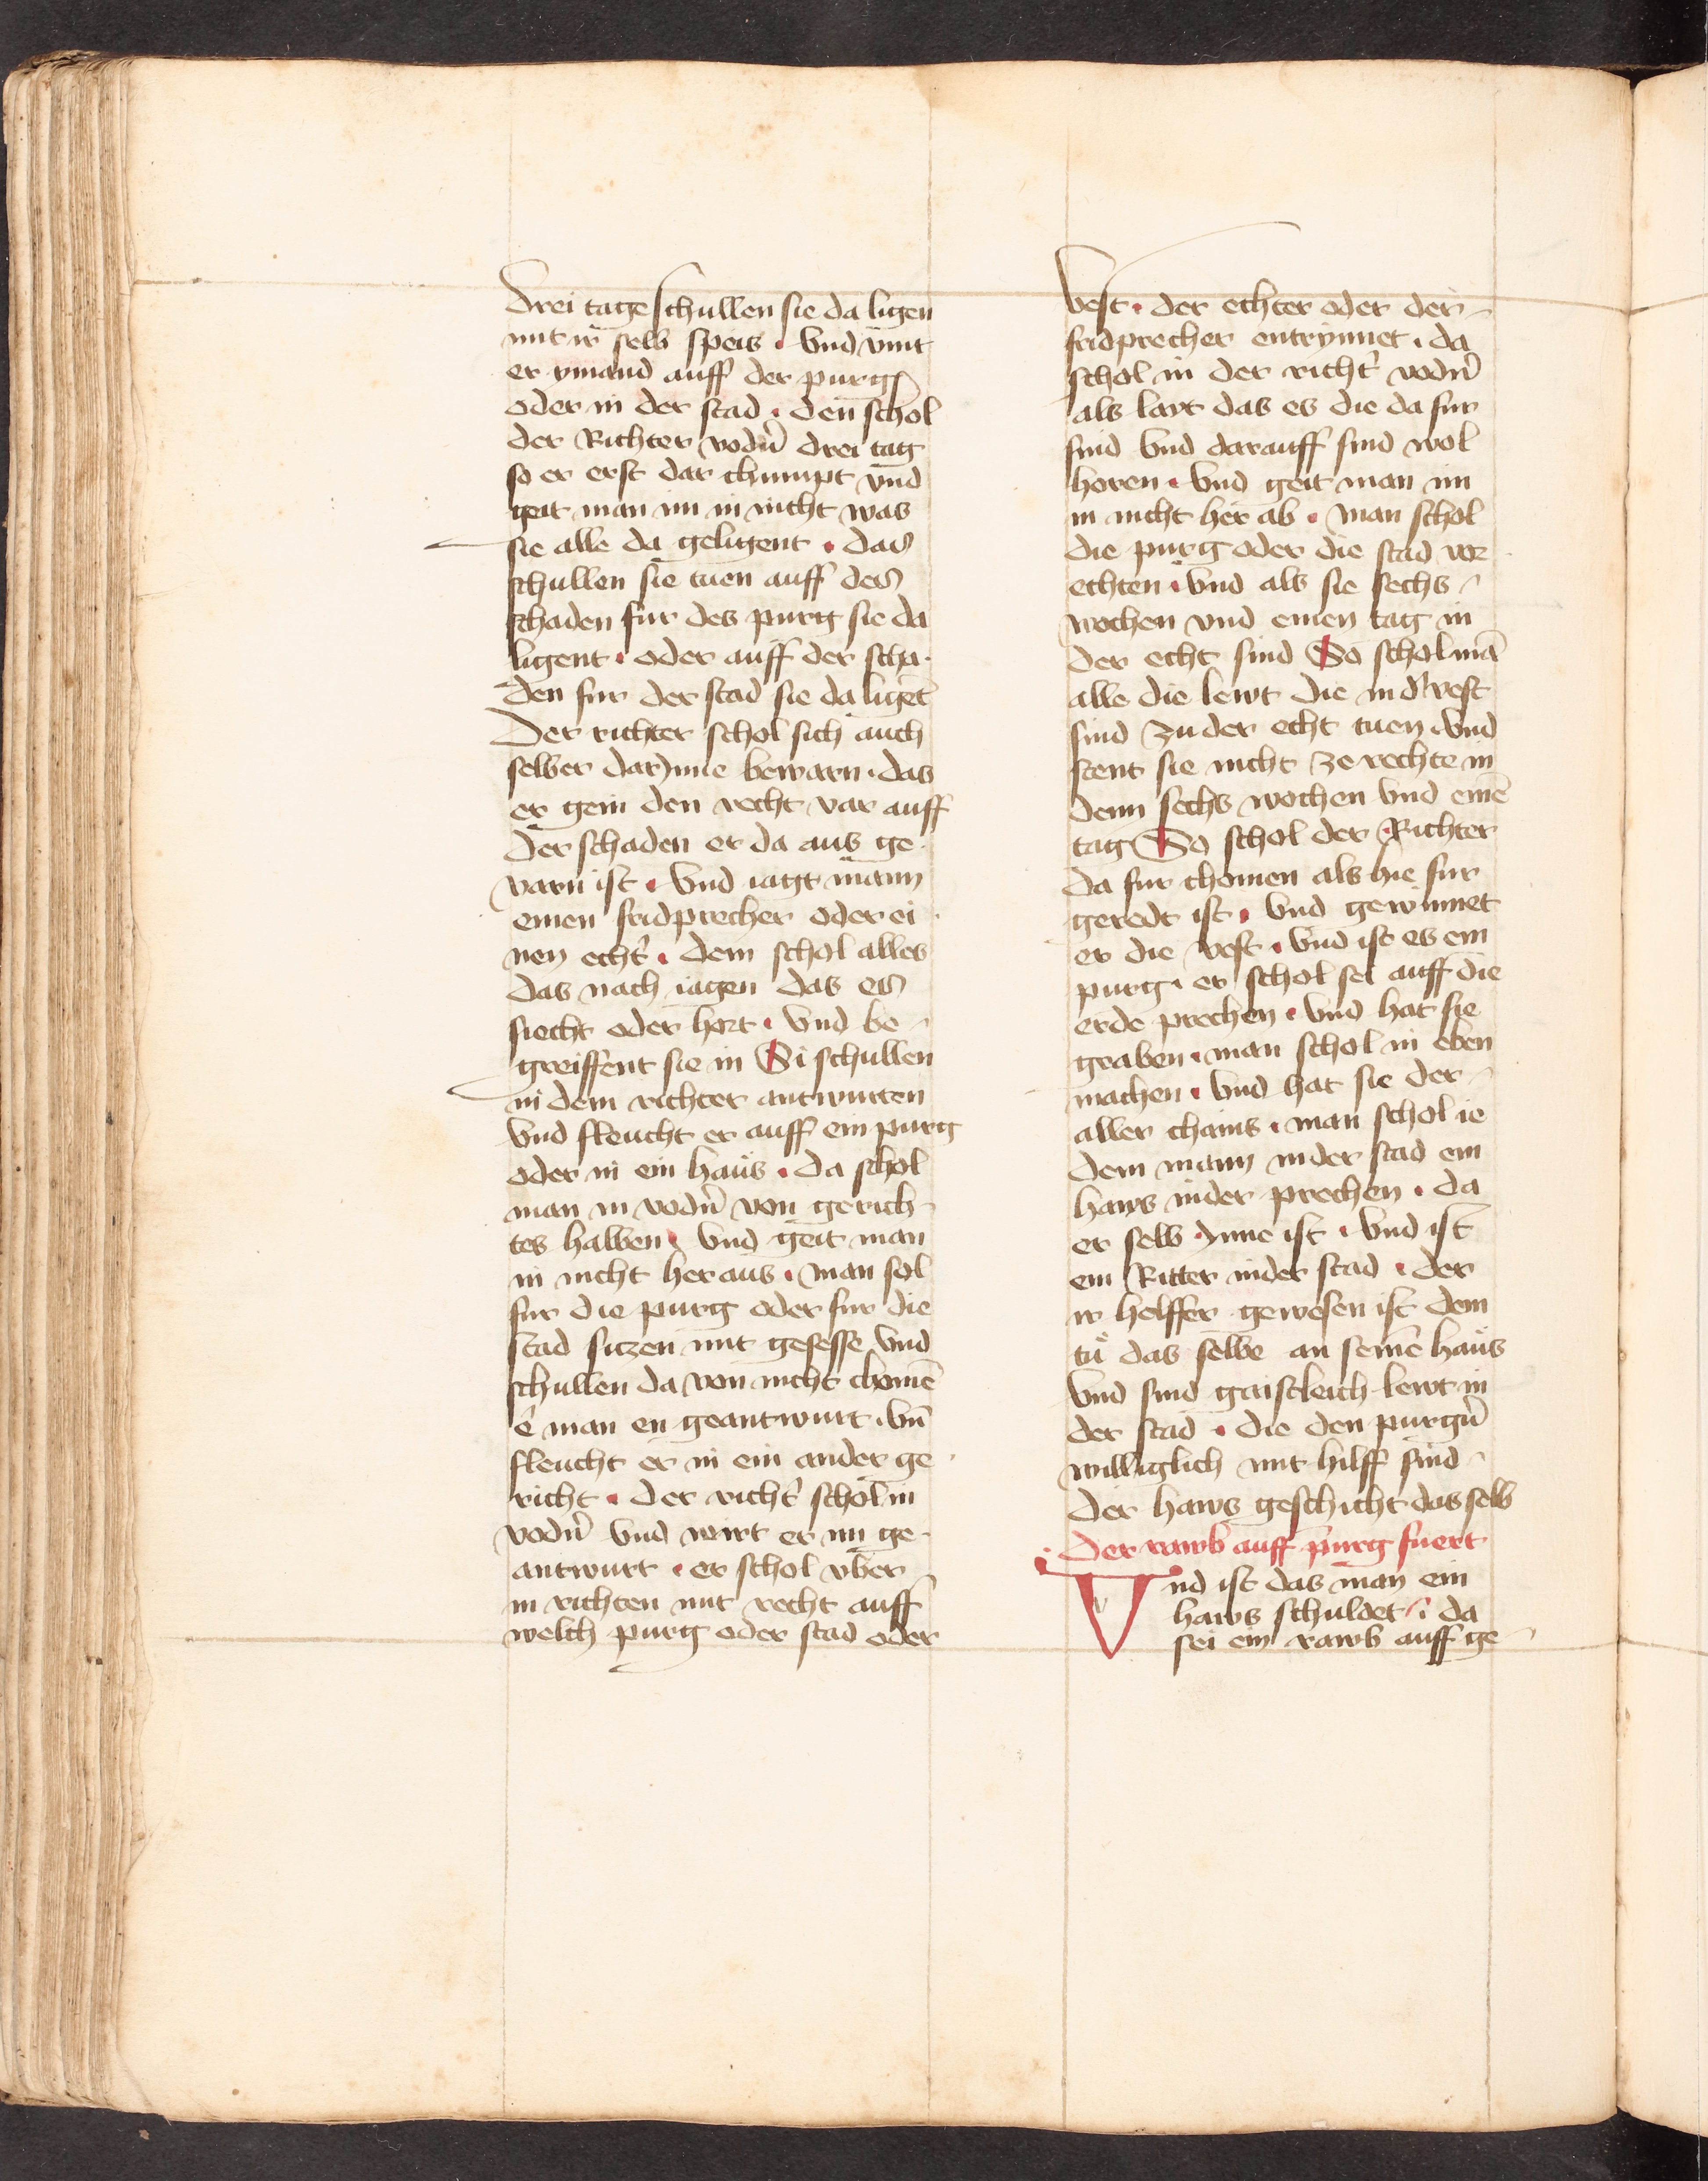 Drei tage schullen sie da ligen
mit ir selb speis · Vnd vint
er ymand auff der purg
oder in der stad · den schol
der Richter vodn̄ drei tag
so er erst dar chumpt vnd
geit man im in nicht was
sie alle da geligent · das
schullen sie tuen auff des
schaden fur des purg sie da
ligent · oder auff der scha·
den fur der stad sie da ligēt
Der richter schol sich auch
selber dar Jnne bewarn · das
er gein den recht var auff
Der schaden er da aus ge·
varn ist · Vnd iagt mann
einen fridprecher oder ei·
nen echt̄ · dem schol alles
das nach iagen das es
siecht oder hort · Vnd be-
greiffent sie in Si schullen
in dem richter antwurten
Vnd fleucht er auff ein purg
oder in ein haus · da schol
man in vodn̄ von gerich-
tes halben · Vnd geit man
in nicht heraus · man sol
fur die purg oder fur die
stad sitzen mit gesesse vnd
schullen da von nicht chomē
ê man en geantwurt · Vn̄
fleucht er in ein ander ge·
richt · Der richt̄ schol in
vodn̄ Vnd wirt er im ge-
antwurt · er schol vber
in richten mit recht auff
welch purg oder stad oder
Vest · der echter oder der
fridprecher entrynnet · da
schol in der richt̄ vodn̄
als lavt das es die da fur
sind Vnd darauff sind wol
horen · Vnd geit man im
in nicht her ab · man schol
die purg oder die stad vor
echten · Vnd als sie sechs
wochen vnd einen tag in
der echt sind So schol mā
alle die lewt die in d̄ vest
sind zu der echt tuen · Vnd
stent sie nicht ze rechte in
denn sechs wochen Vnd einē
tag So schol der Richter
da fur chomen als hie fur
geredt ist · Vnd gewinnet
er die vest · Vnd ist es ein
purg · er schol sei auff die
erde prechen · Vnd hat sie
graben · man schol in eben
machen · Vnd hat sie der
aller chains · man schol ie
dem mann in der stad ein
haws nider prechen · da
er selb Jnne ist · Vnd ist
ein Ritter in der stad · der
ir helffer gewesen ist dem
tů das selbe an seinē haus
Vnd sind gaistleich lewt in
der stad · die den purgn̄
williglich mit hilff sind
Der haws geschicht das selb
Der rawb auff purg fuert
Vnd ist das man ein
haws schuldet · da
sei ein rawb auff ge-